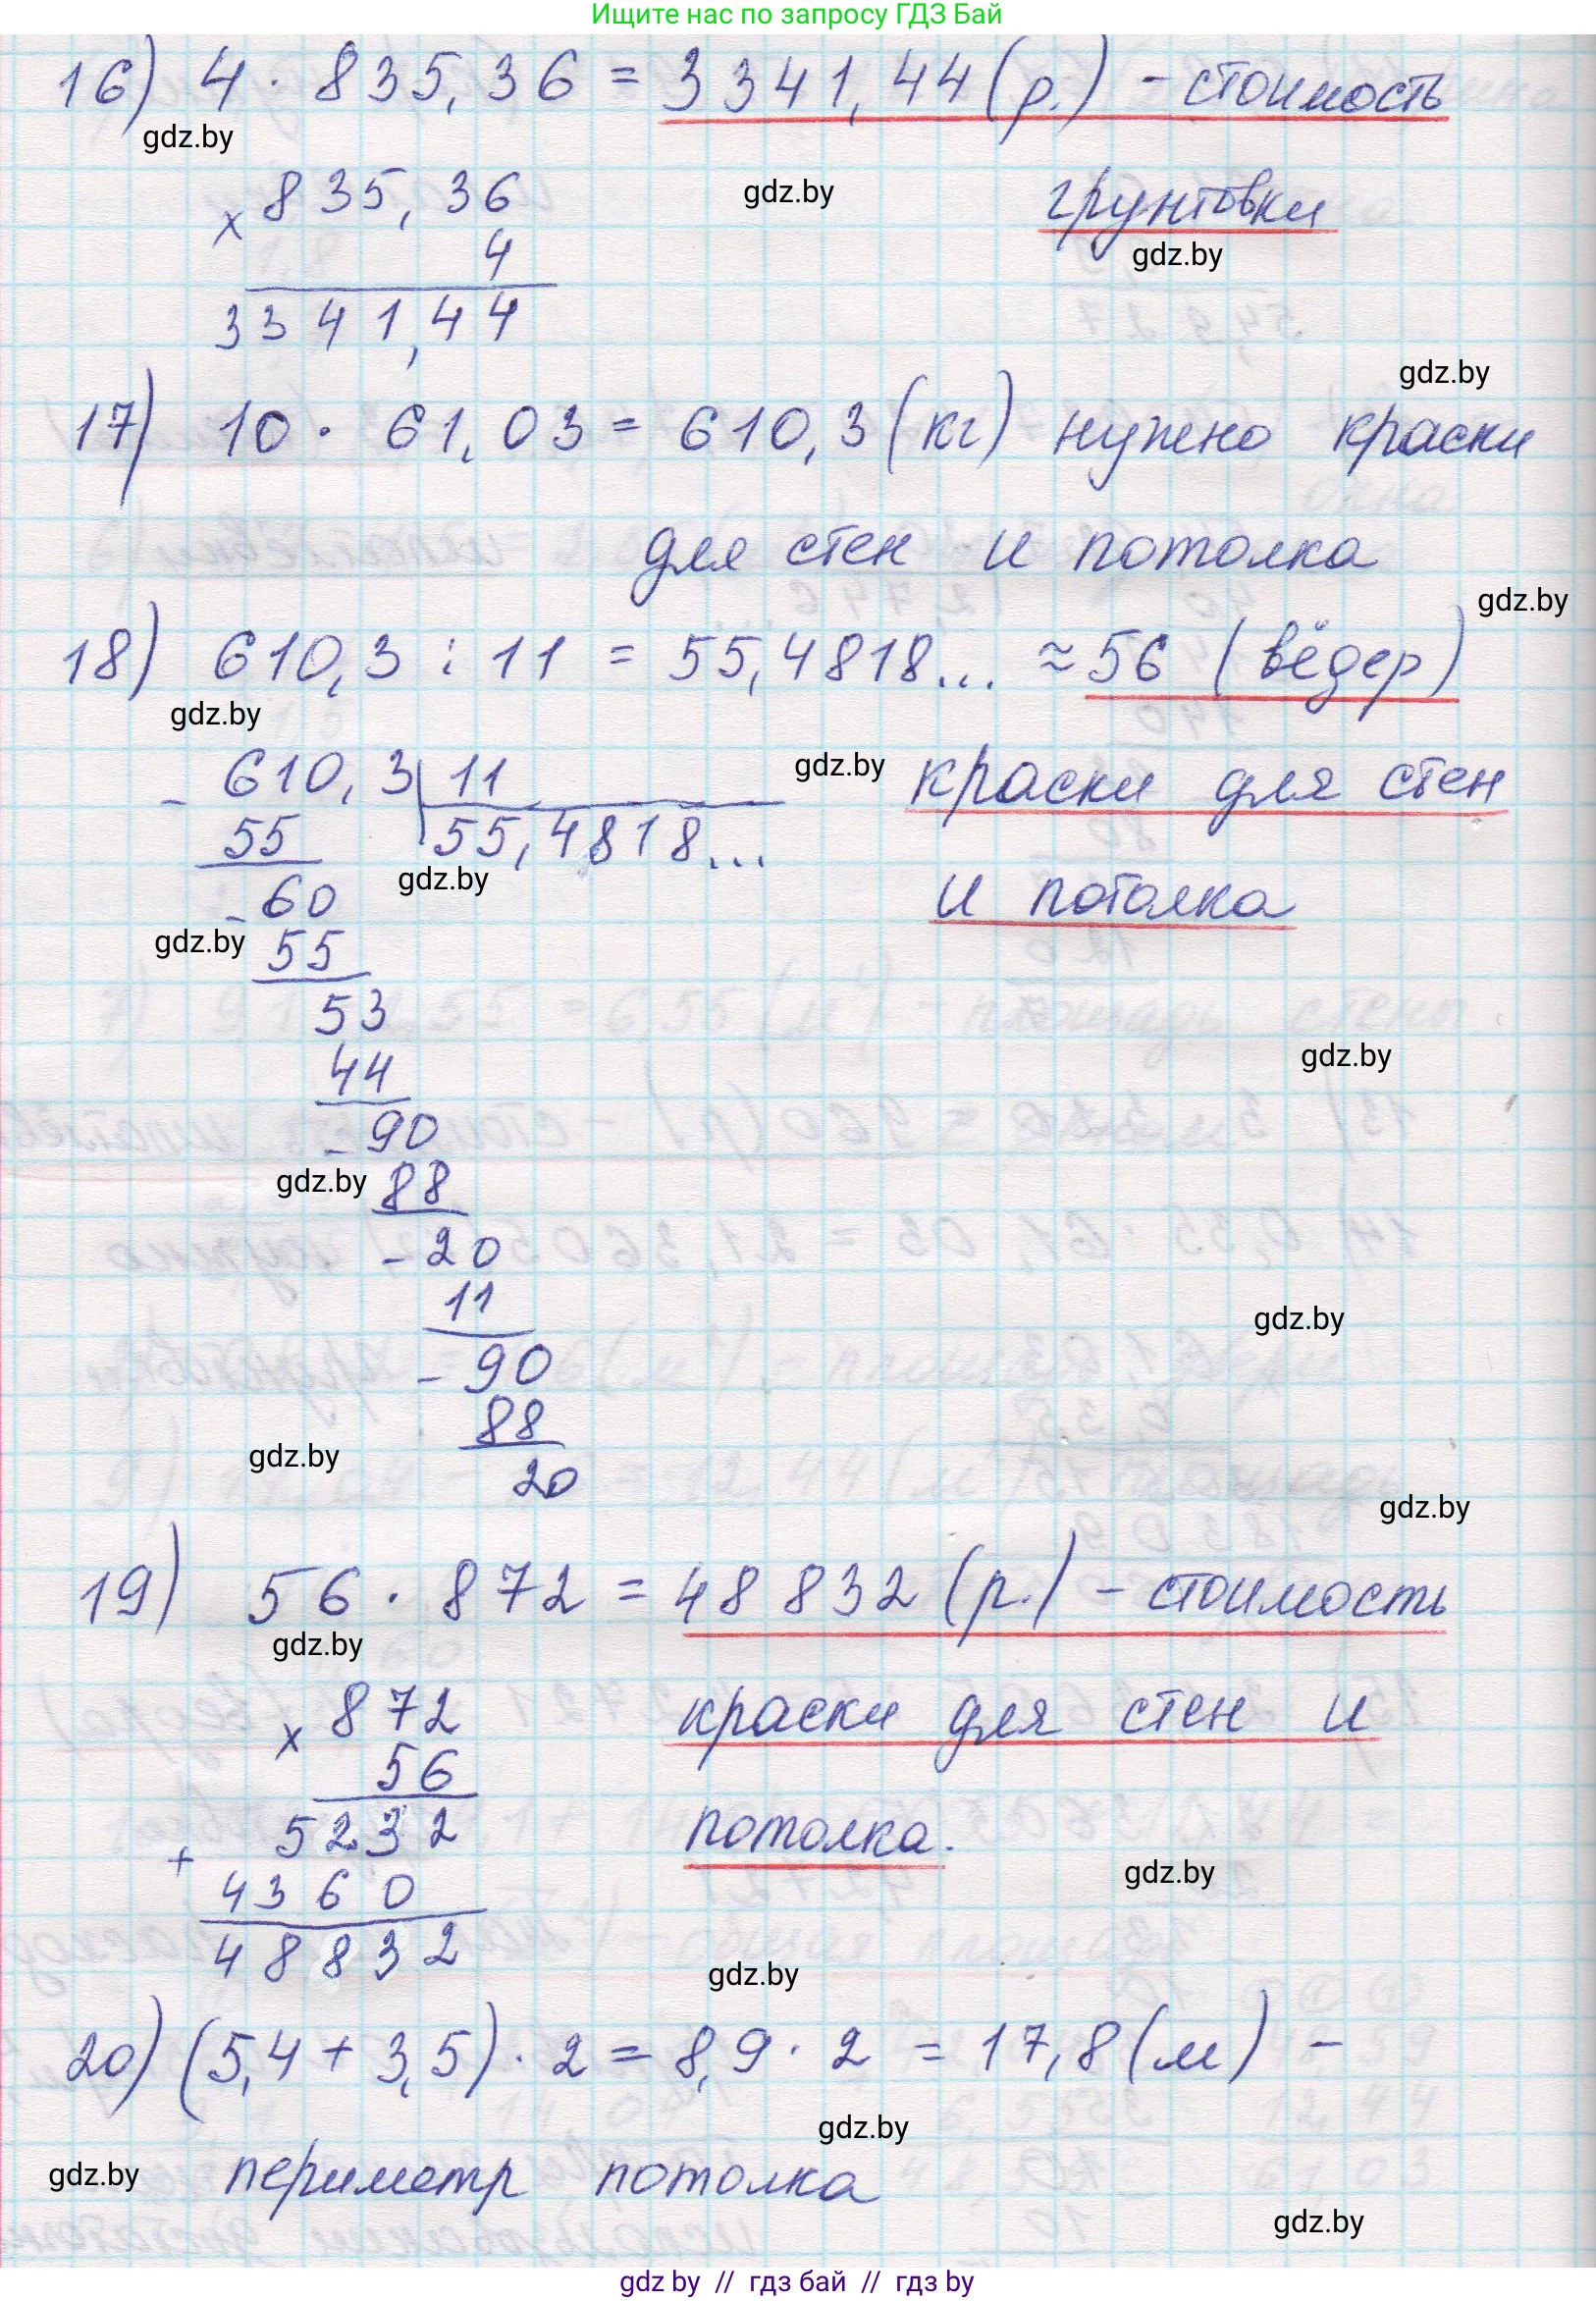 Ищите нас по запросу ГДЗ Бай
16) 4 · 835,36 = 3341,44 (р.) - стоимость
gdz.by
грунтовки
× 835,36
gdz.by
4
gdz.by
3341,44
gdz.by
17) 10 · 61,03 = 610,3 (кг) нужно краски
для стен и потолка
gdz.by
18) 610,3 : 11 = 55,4818... ≈ 56 (вёдер)
gdz.by
gdz.by
краски для стен
- 610,3 | 11
55 55,4818...
gdz.by
и потолка
- 60
gdz.by
55
53
gdz.by
44
- 90
gdz.by
88
- 20
11
gdz.by
- 90
88
gdz.by
20
gdz.by
19) 56 · 872 = 48832 (р.) - стоимость
gdz.by
× 872
краски для стен и
56
+ 5232
потолка.
gdz.by
4360
48832
gdz.by
20) (5,4 + 3,5) · 2 = 8,9 · 2 = 17,8 (м) -
gdz.by
gdz.by
периметр потолка
gdz.by
gdz by // гдз бай // gdz by